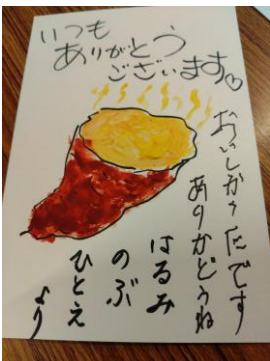 いつも
ありがとう
ございます♡
おいしかったです
ありがとうね
はるみ
のぶ
ひとえ
より